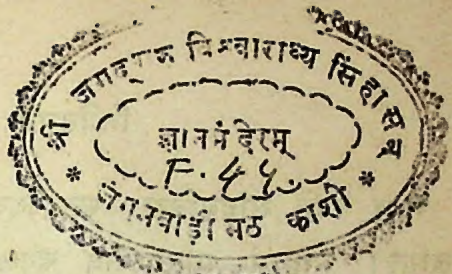 श्री जगद्गुरु विश्वाराध्य सिंहासन
ज्ञानमंदिरम्
F. 44.
* जंगमवाड़ी मठ काशी *